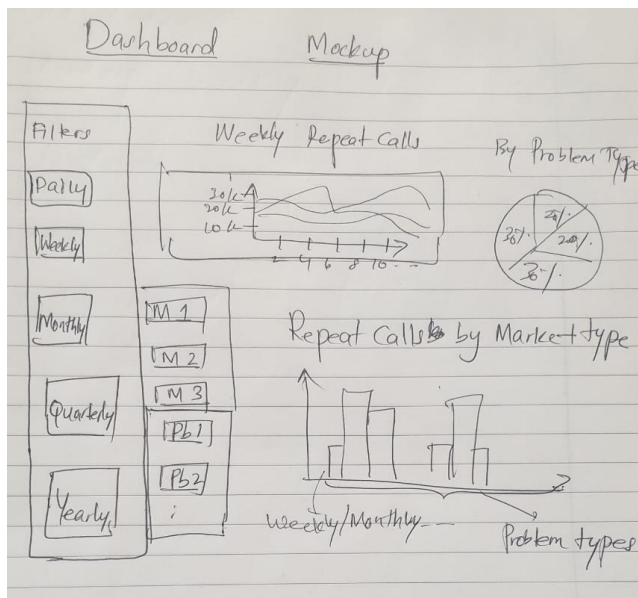 Dashboard Mockup
Filters
Daily
Weekly
Monthly
Quarterly
Yearly
M 1
M 2
M 3
Pb1
Pb2
Weekly Repeat Calls
30k
20k
10k
2 4 6 8 10 - -
By Problem Type
30%
20%
20%
30%
Repeat Calls by Market type
Weekly/Monthly----
Problem types